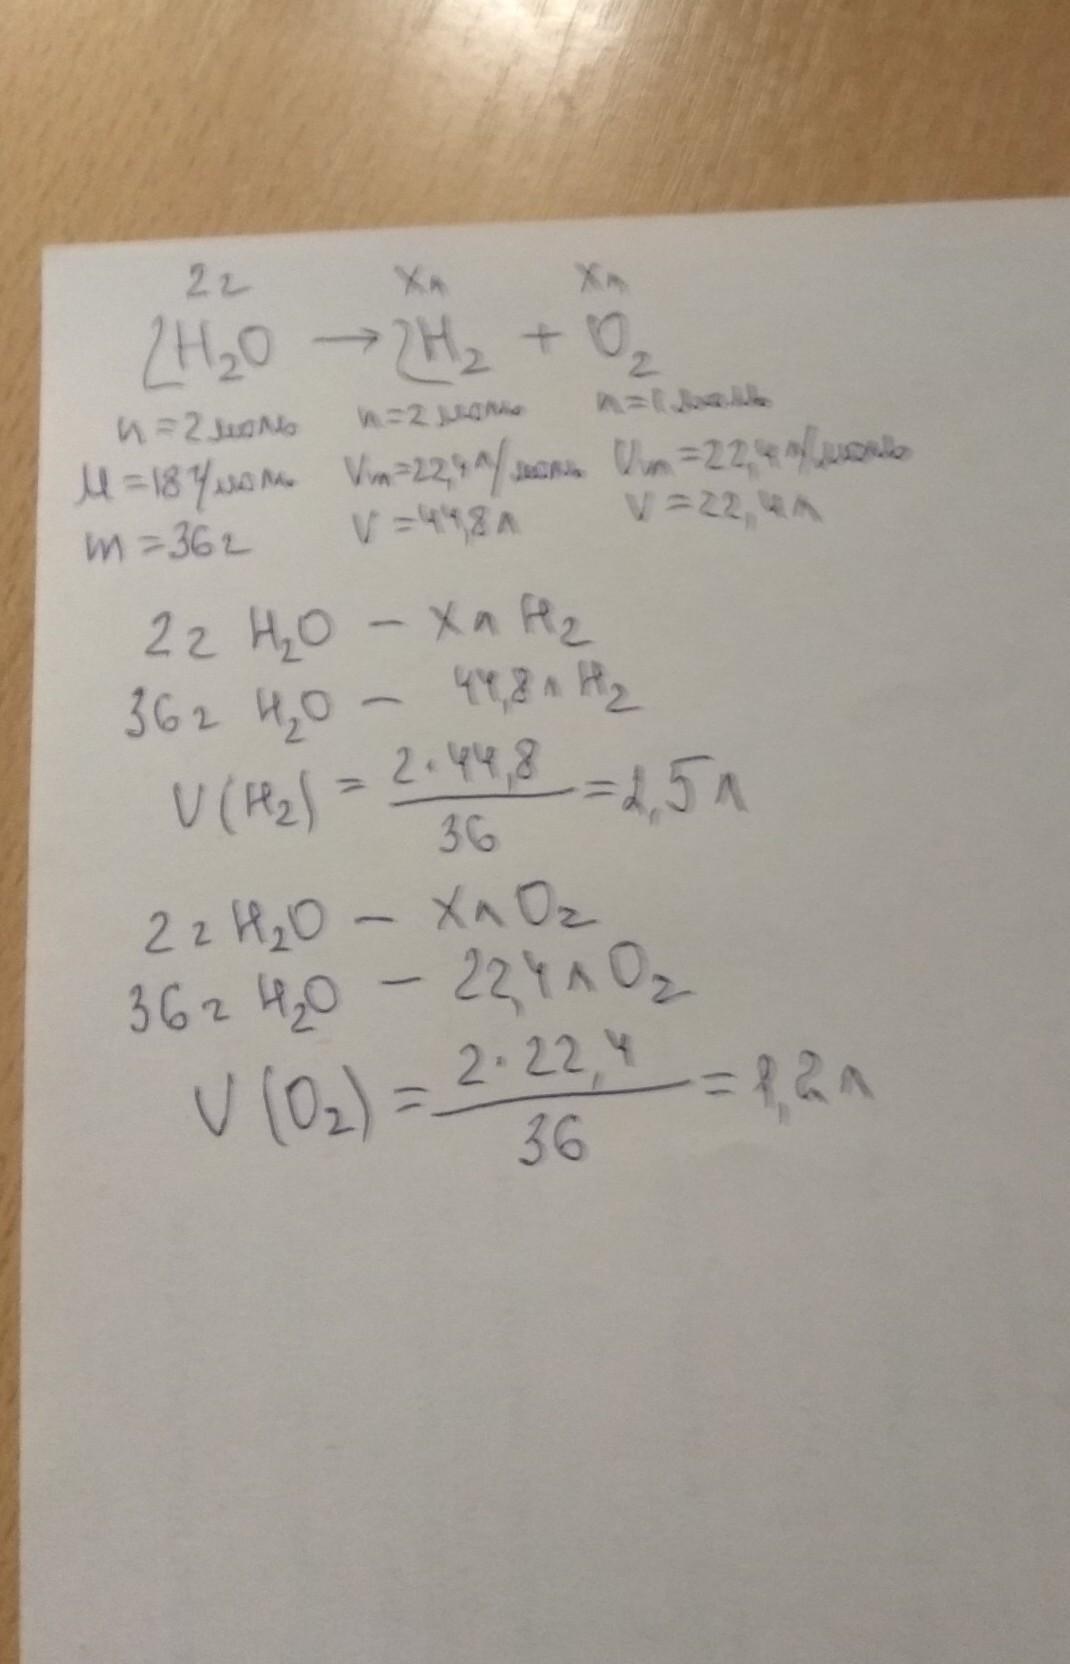 2г xл xл
2H₂O → 2H₂ + O₂
n=2моль n=2моль n=1моль
M=18г/моль Vm=22,4л/моль Vm=22,4л/моль
m=36г V=44,8л V=22,4л
2г H₂O – xл H₂
36г H₂O – 44,8л H₂
V(H₂) = 2·44,8/36 = 2,5л
2г H₂O – xл O₂
36г H₂O – 22,4л O₂
V(O₂) = 2·22,4/36 = 1,2л